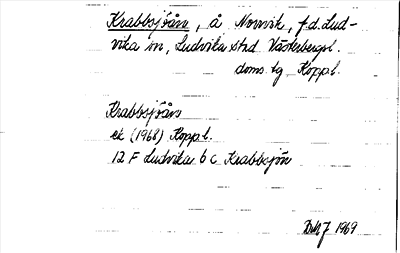 Krabbsjöån, å Norrvik, f.d. Lud-
vika sn, Ludvika stad Västerbergsl.
doms.tg Kopp l.
Krabbsjöån
ek (1968) Kopp l.
12 F Ludvika 6 c Krabbsjön
1969